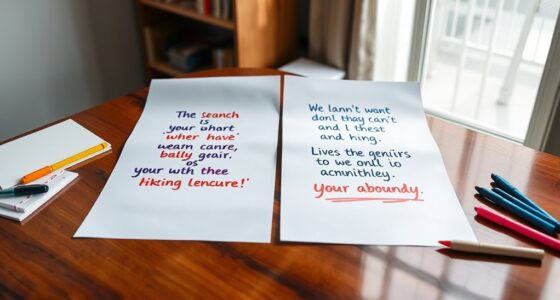 The search
is
your whart
wher have
weam canre,
bally geair.
os
your wuth thee
hiking lencure!'
We lann't want
donl thay can't
and I thest
and hing.
Lives the geniirs
to we onl io
acmnithley.
your aboundy.